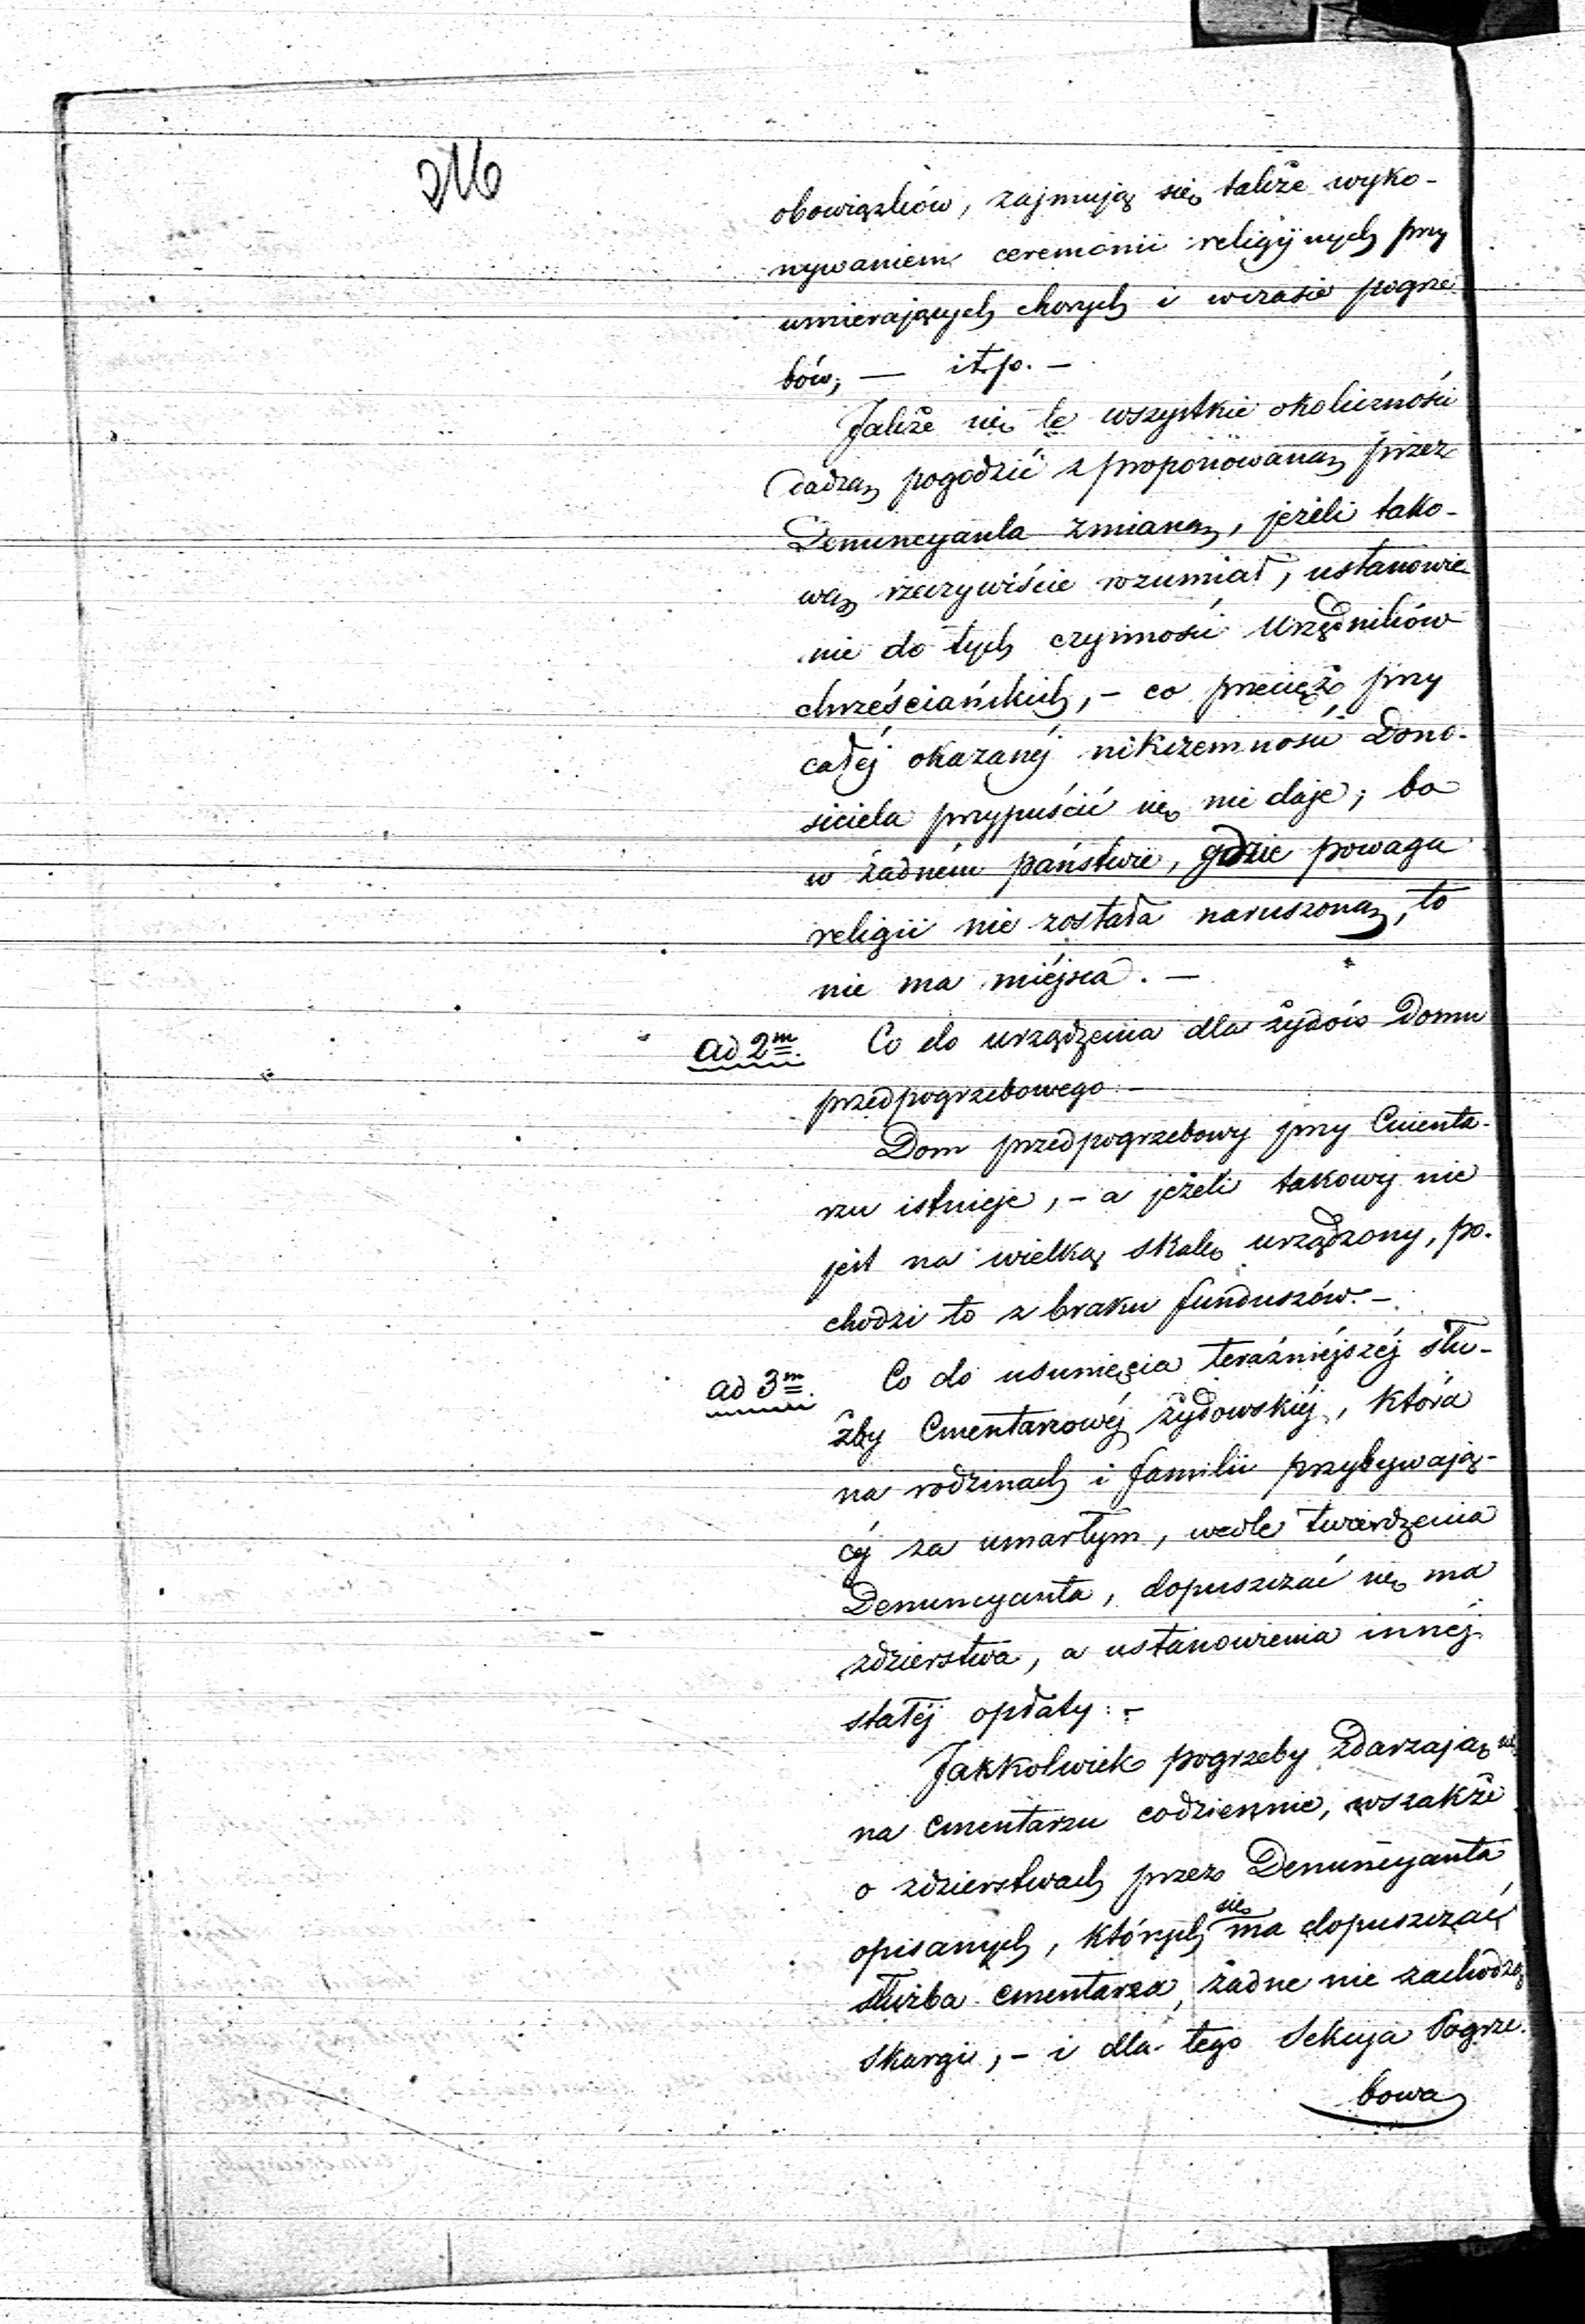 216
obowiązków, zajmują się także wyko-
nywaniem ceremonii religijnych przy
umierających chorych i wczasie pogrze
bów; — itp. —
Jakże się te wszystkie okoliczności
dadzą pogodzić z proponowaną przez
Denuncyanta zmianą, jeżeli tako-
wą rzeczywiście rozumiał, ustanowie
nie do tych czynności Urzędników
chrześciańskich, – co przecięż przy
całéj okazanéj nikczemności Dono-
siciela przypuścić się nie daje; bo
w żadném państwie, gdzie powaga
religii nie została naruszoną, to
nie ma miéjsca. —
ad 2m. Co do urządzenia dla żydów Domu
przedpogrzebowego. —
Dom przedpogrzebowy przy Cmenta-
rzu istnieje, – a jeżeli takowy nie
jest na wielką skalę urządzony, po-
chodzi to z braku funduszów. –
ad 3m. Co do usunięcia teraźniéjszéj słu-
żby Cmentarzowéj żydowskiéj, która
na rodzinach i familii przybywają-
céj za umarłym, wedle twierdzenia
Denuncyanta, dopuszczać się ma
zdzierstwa, a ustanowienia innéj
stałéj opłaty: –
Jakkolwiek pogrzeby zdarzają się
na cmentarzu codziennie, wszakże
o zdzierstwach przez Denuncyanta
opisanych, których się ma dopuszczać
służba cmentarza, żadne nie zachodzą
skargi, – i dla tego Sekcya Pogrze-
bowa